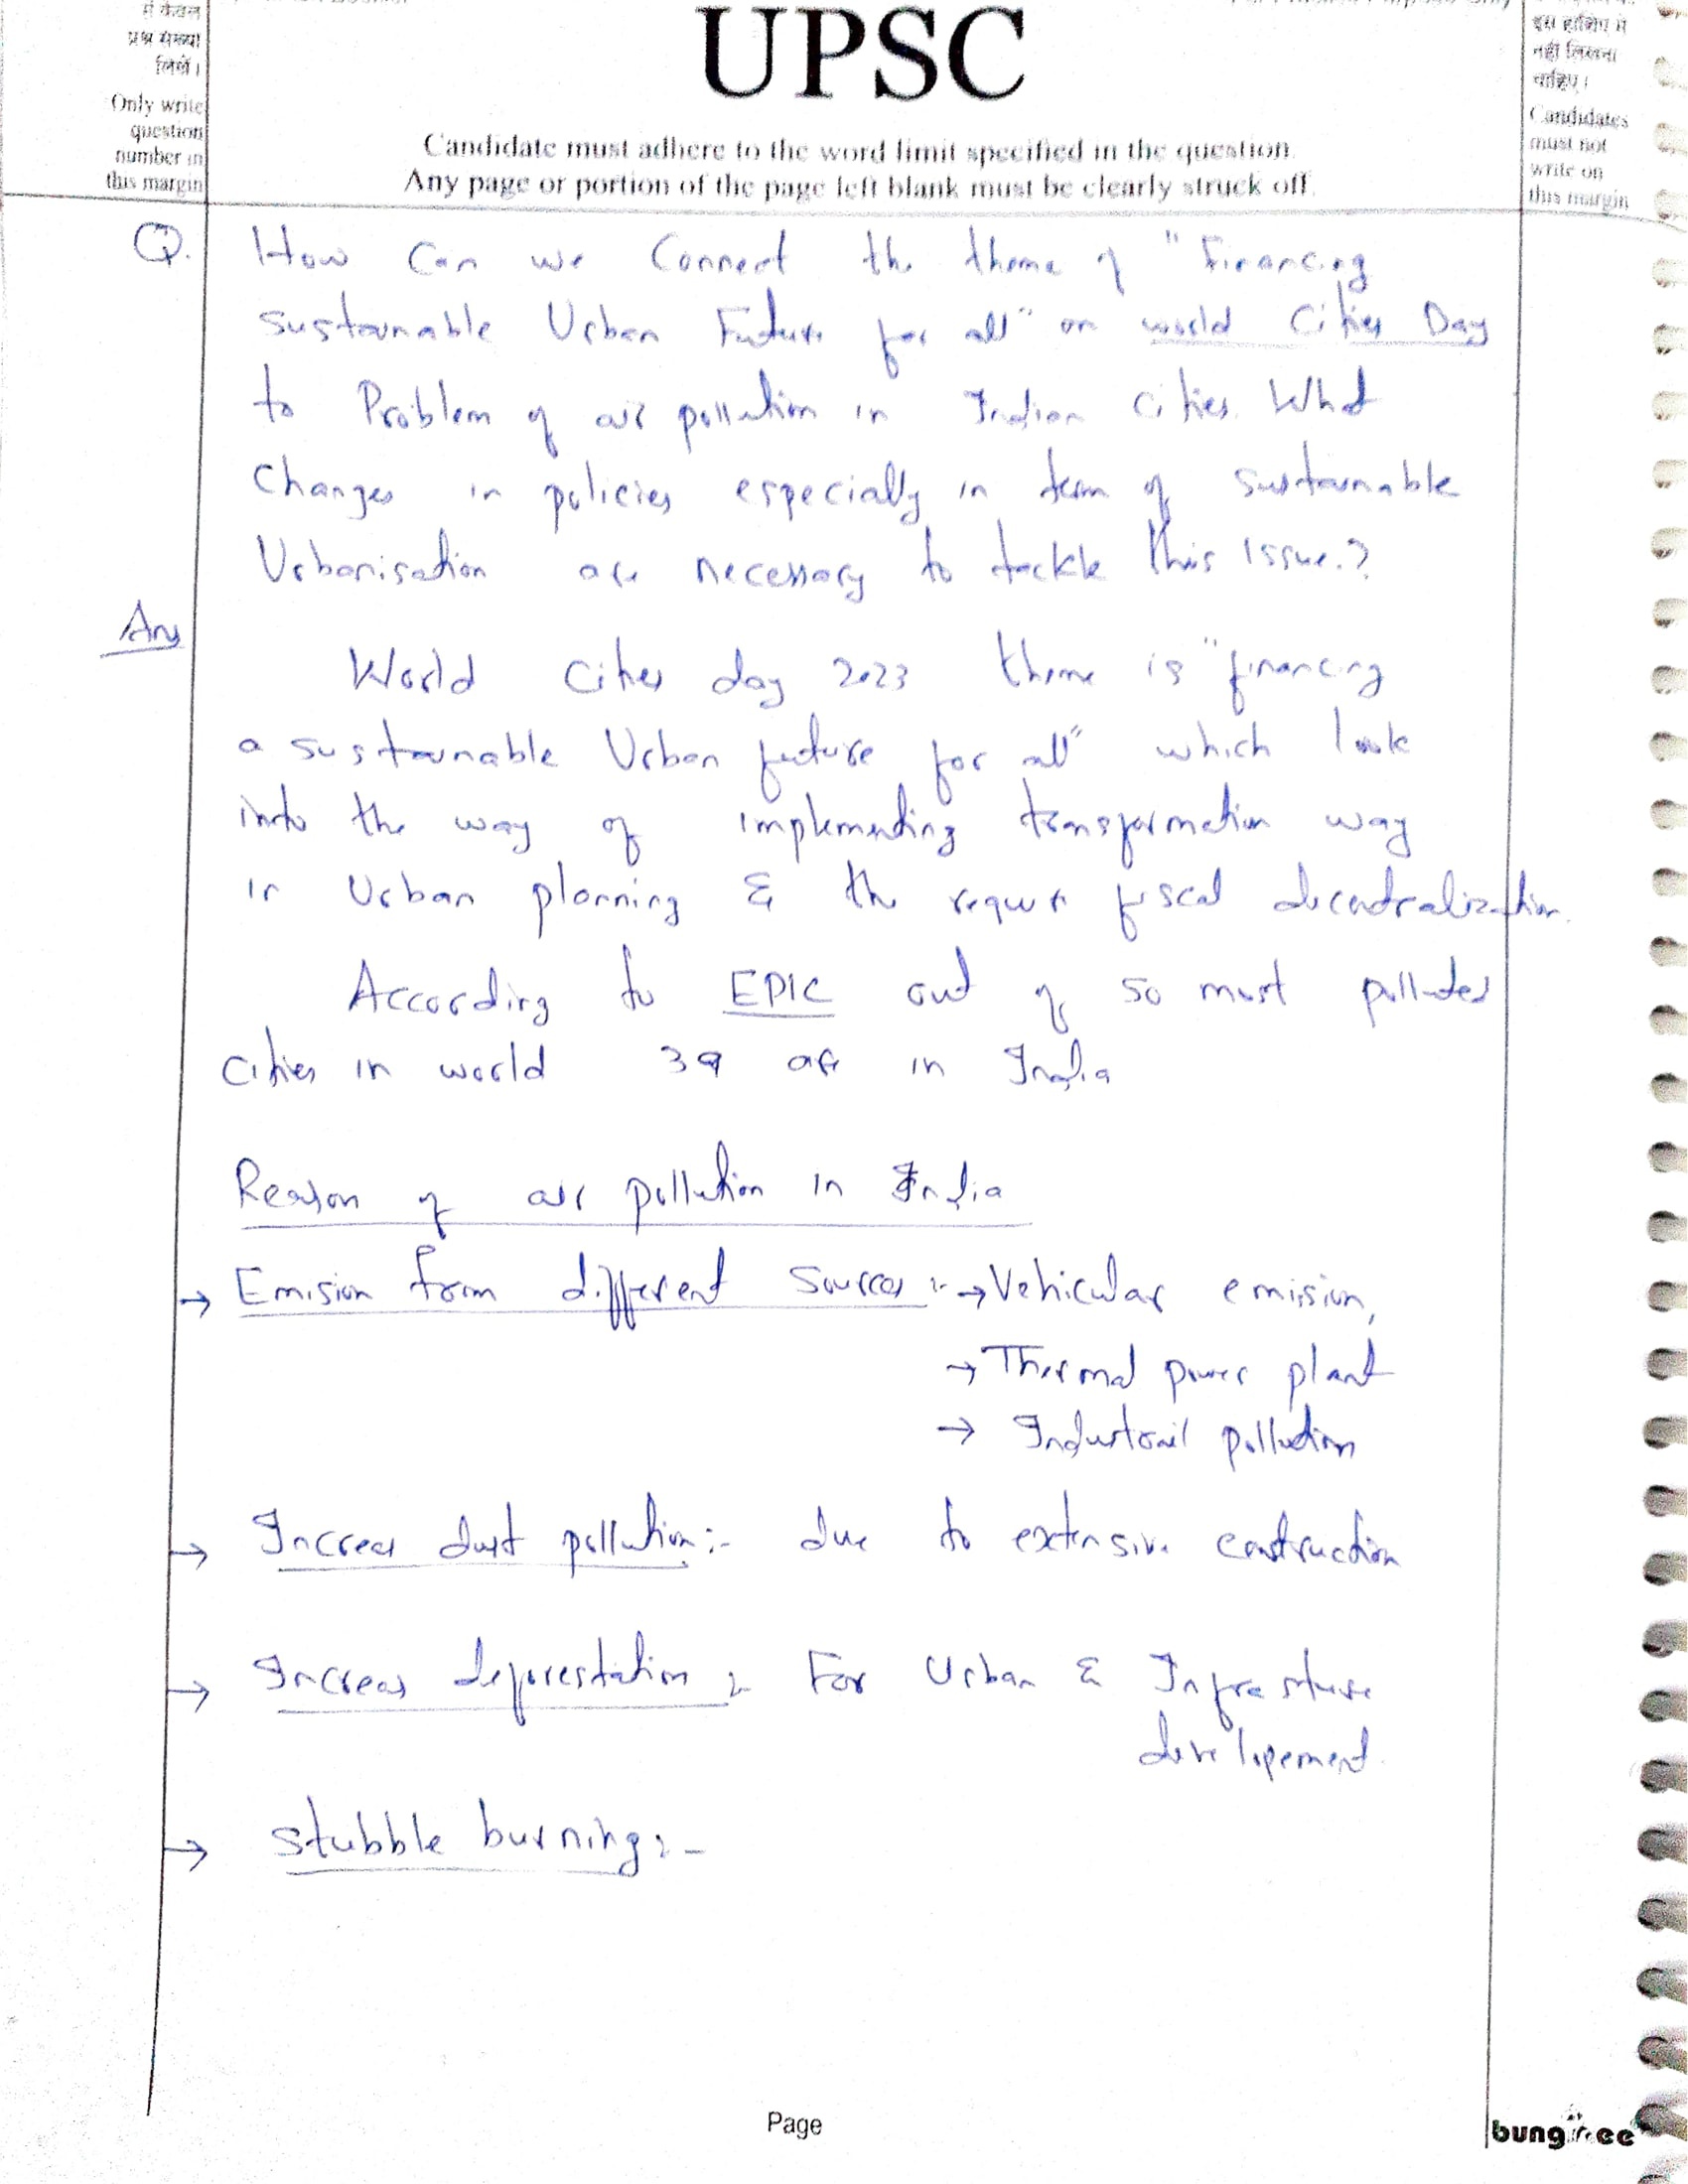 में केवल
प्रश्न संख्या
लिखें।
Only write
question
number in
this margin
UPSC
Candidate must adhere to the word limit specified in the question.
Any page or portion of the page left blank must be clearly struck off.
इस हाशिए में
नहीं लिखना
चाहिए।
Candidates
must not
write on
this margin
Q. How Can we Connect the theme of "Financing
Sustainable Urban Future for all" on world Cities Day
to Problem of air pollution in Indian cities. What
Changes in policies especially in term of sustainable
Urbanisation are necessary to tackle this issue.?
Ans
World Cities day 2023 theme is "financing
a sustainable Urban future for all" which look
into the way of implementing transformation way
in Urban planning & the require fiscal decentralization.
According to EPIC out of 50 most polluted
cities in world 39 are in India
Reason of air pollution in India
→ Emision from different Sources :- → Vehicular emission,
→ Thermal power plant
→ Industrail pollution
→ Increas dust pollution :- due to extensive construction
→ Increas deforestation :- For Urban & Infrasture
developement.
→ Stubble burning :-
Page